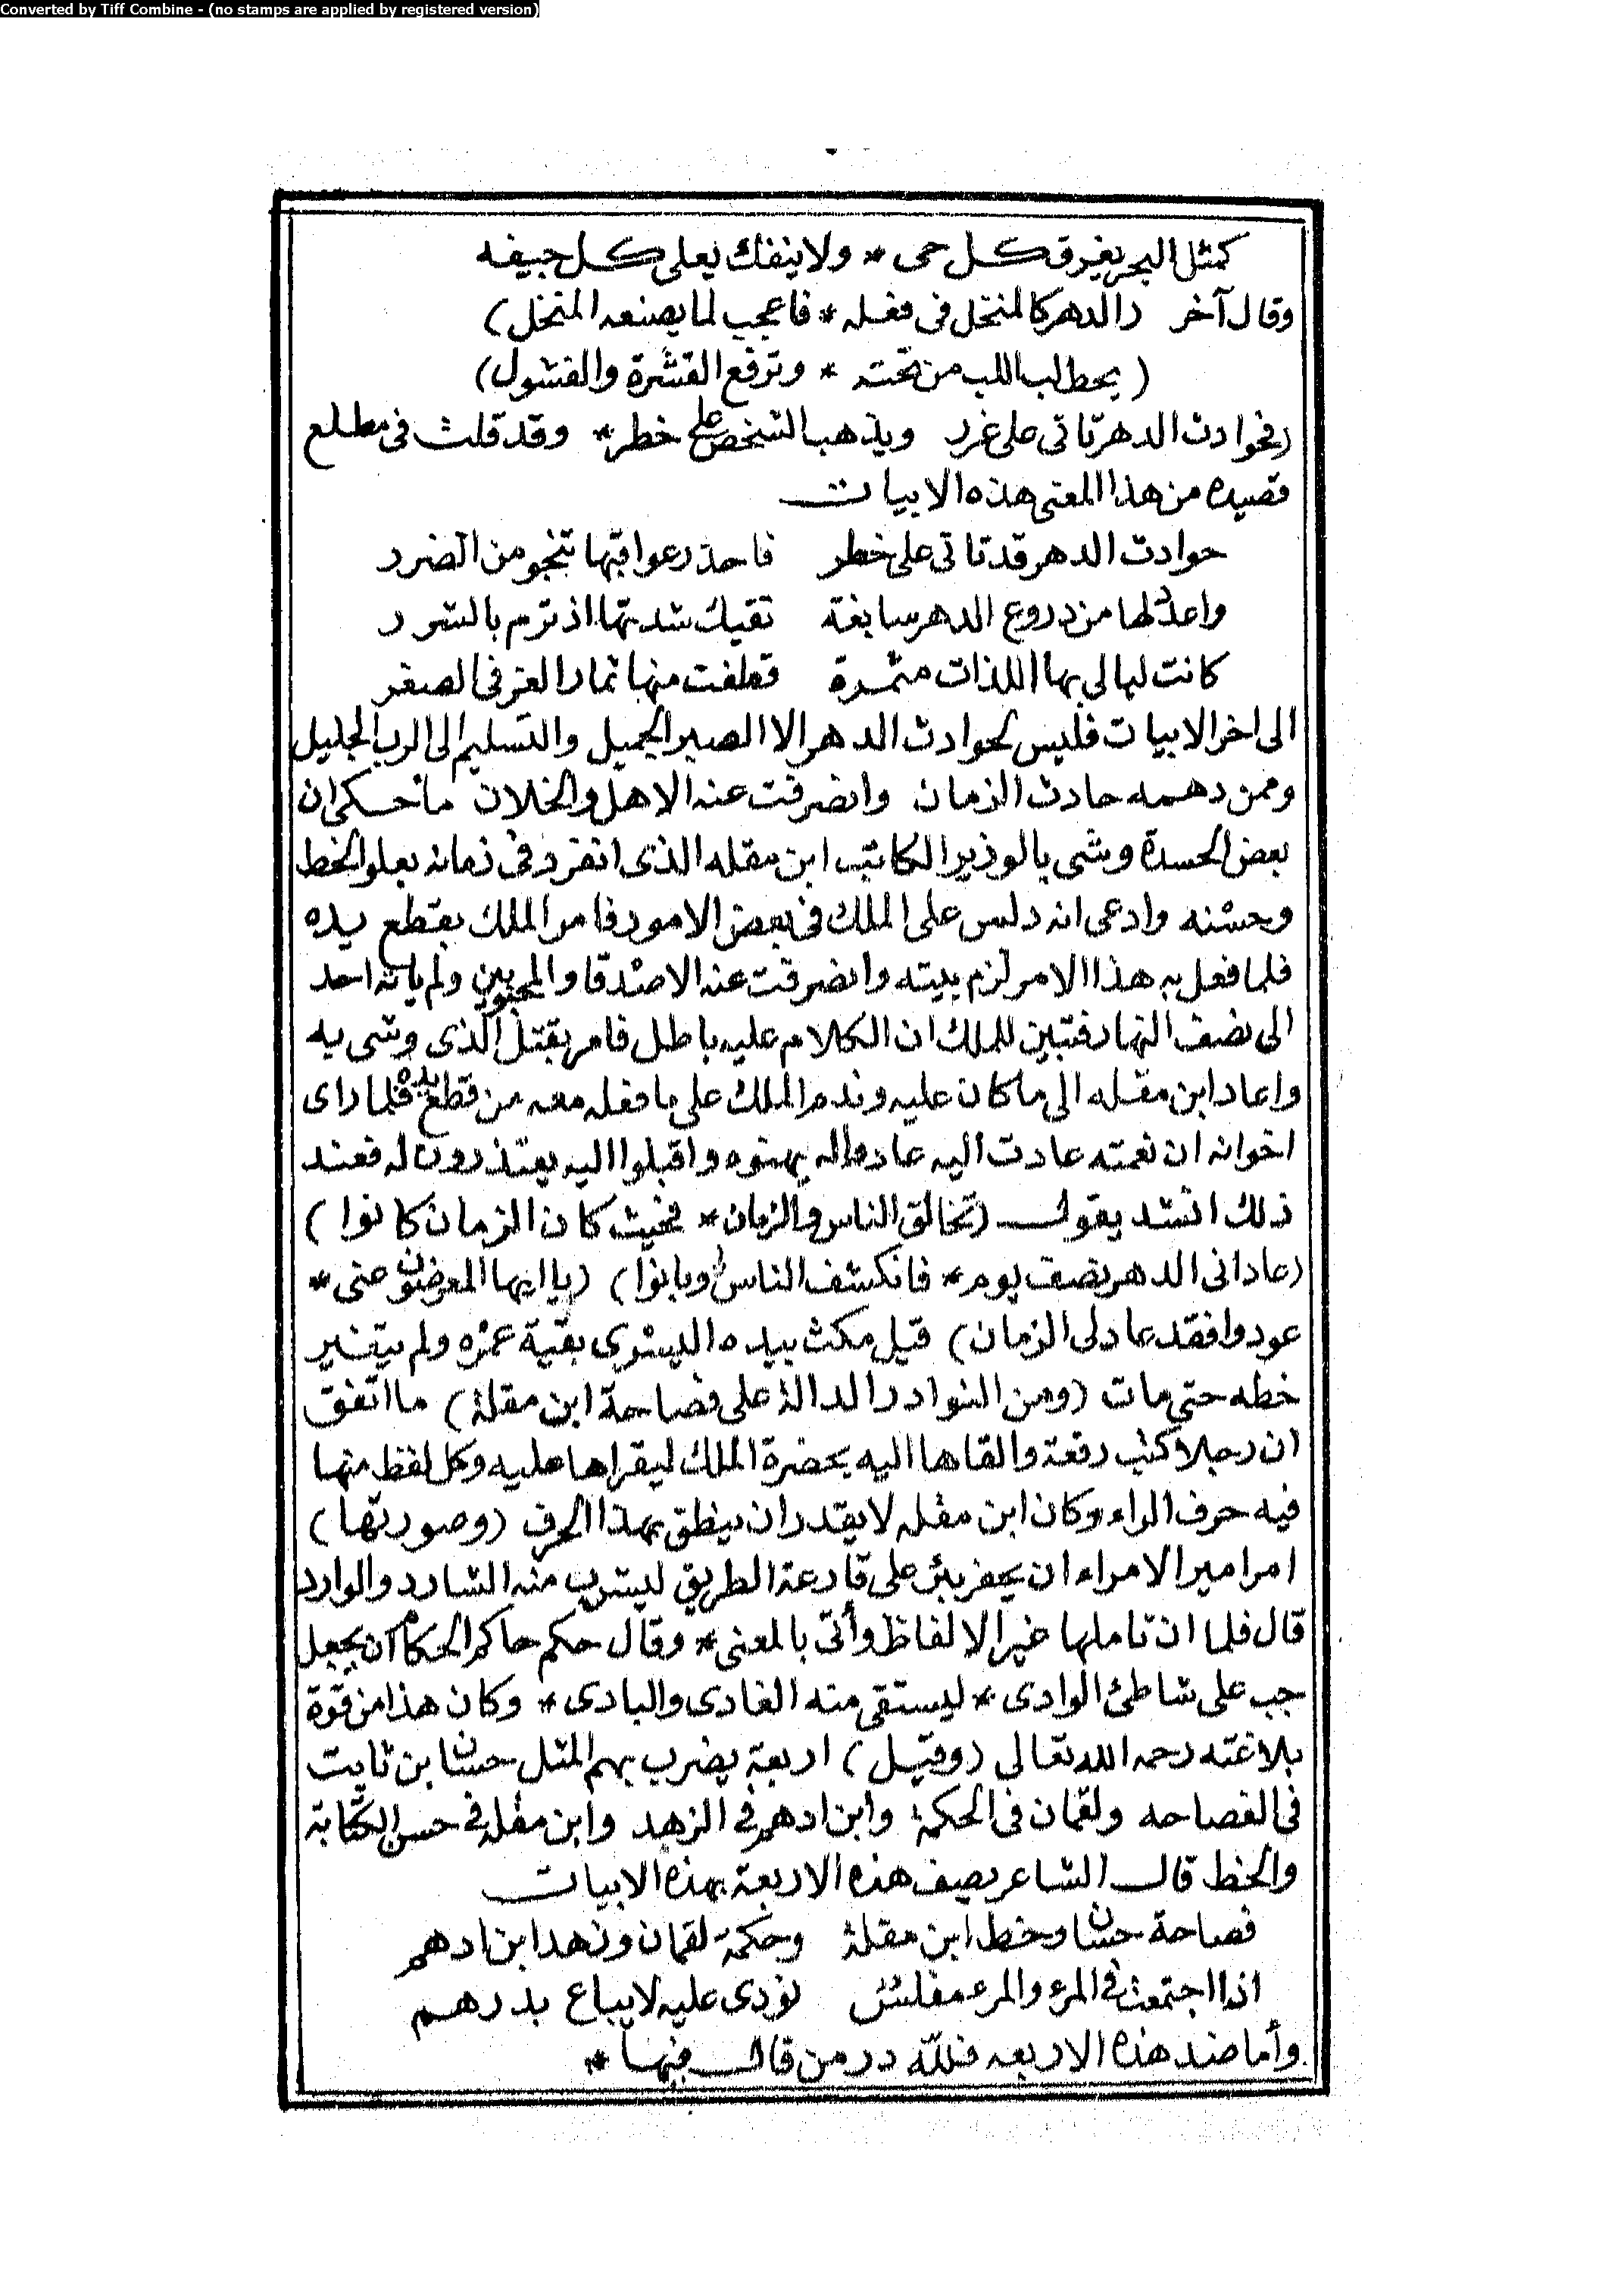 Converted by Tiff Combine - (no stamps are applied by registered version)
كمثل البحر يغرق كل حى * ولا ينفك يعلى كل جيفه
وقال آخر (الدهر كالمنخل فى فعله * فاعجب لما يصنعه المنخل)
(يحط لب اللب من تحته * وترفع القشرة والفشول)
(فحوادث الدهر تاتى على غرر ويذهب الشخص على خطر * وقد قلت فى مطلع
قصيده من هذا المعنى هذه الابيات
حوادث الدهر قد تاتى على خطر فاحذر عواقبها تنجو من الضرر
واعدد لها من دروع الدهر سابغة تقيك شدتها اذ ترم بالشرر
كانت ليالى بها اللذات مثمرة قطفت منها ثمار العز فى الصغر
الى اخر الابيات فليس لحوادث الدهر الا الصبر الجميل والتسليم الى الرب الجليل
وممن دهمه حادث الزمان وانصرفت عنه الاهل والخلان ما حكى ان
بعض الحسدة وشى بالوزير الكاتب ابن مقله الذى انفرد فى زمانه بعلو الخط
وحسنه وادعى انه دلس على الملك فى بعض الامور فامر الملك بقطع يده
فلما فعل به هذا الامر لزم بيته وانصرفت عنه الاصدقا والمحبوبين ولم ياته احد
الى نصف النهار فتبين للملك ان الكلام عليه باطل فامر بقتل الذى وشى به
واعاد ابن مقله الى ما كان عليه وندم الملك على ما فعله معه من قطع يده فلما راى
اخوانه ان نعمته عادت اليه عادوا له يهنوه واقبلوا اليه يعتذرون له فعند
ذلك انشد يقول (تخالق الناس والزمان * فحيث كان الزمان كانوا)
(عادانى الدهر نصف يوم * فانكشف الناس لى وبانوا) (يا ايها المعرضون عنى *
عودوا فقد عاد لى الزمان) قيل مكث بيده اليسرى بقية عمره ولم يتغير
خطه حتى مات (ومن النوادر الدالة على فصاحة ابن مقلة) ما اتفق
ان رجلا كتب رقعة والقاها اليه بحضرة الملك ليقراها عليه وكل لفظ منها
فيه حرف الراء وكان ابن مقله لا يقدر ان ينطق بهذا الحرف (وصورتها)
امر امير الامراء ان يحفر بئر على قارعة الطريق ليشرب منه الشارد والوارد
قال فلما ان تاملها غير الالفاظ وأتى بالمعنى * وقال حكم حاكم الحكام ان يجعل
جب على شاطئ الوادى * ليستقى منه الغادى والبادى * وكان هذا من قوة
بلاغته رحمه الله تعالى (وقيل) اربعة يضرب بهم المثل حسان ابن ثابت
فى الفصاحه ولقمان فى الحكمة وابن ادهم فى الزهد وابن مقله فى حسن الكتابة
والخط قال الشاعر يصف هذه الاربعة بهذه الابيات
فصاحة حسان وخط ابن مقلة وحكمة لقمان وزهد ابن ادهم
اذا اجتمعت فى المرء والمرء مفلس نودى عليه لا يباع بدرهم
وأما ضد هذه الاربعه فلله در من قال فيها *